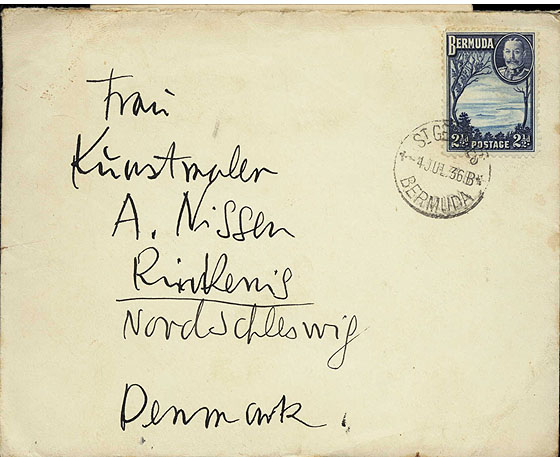 BERMUDA
2½d POSTAGE 2½d
ST GEORGES
4 JUL 36 B
BERMUDA
Frau
Kunstmaler
A. Nissen
Rinkenis
Nordschleswig
Denmark.